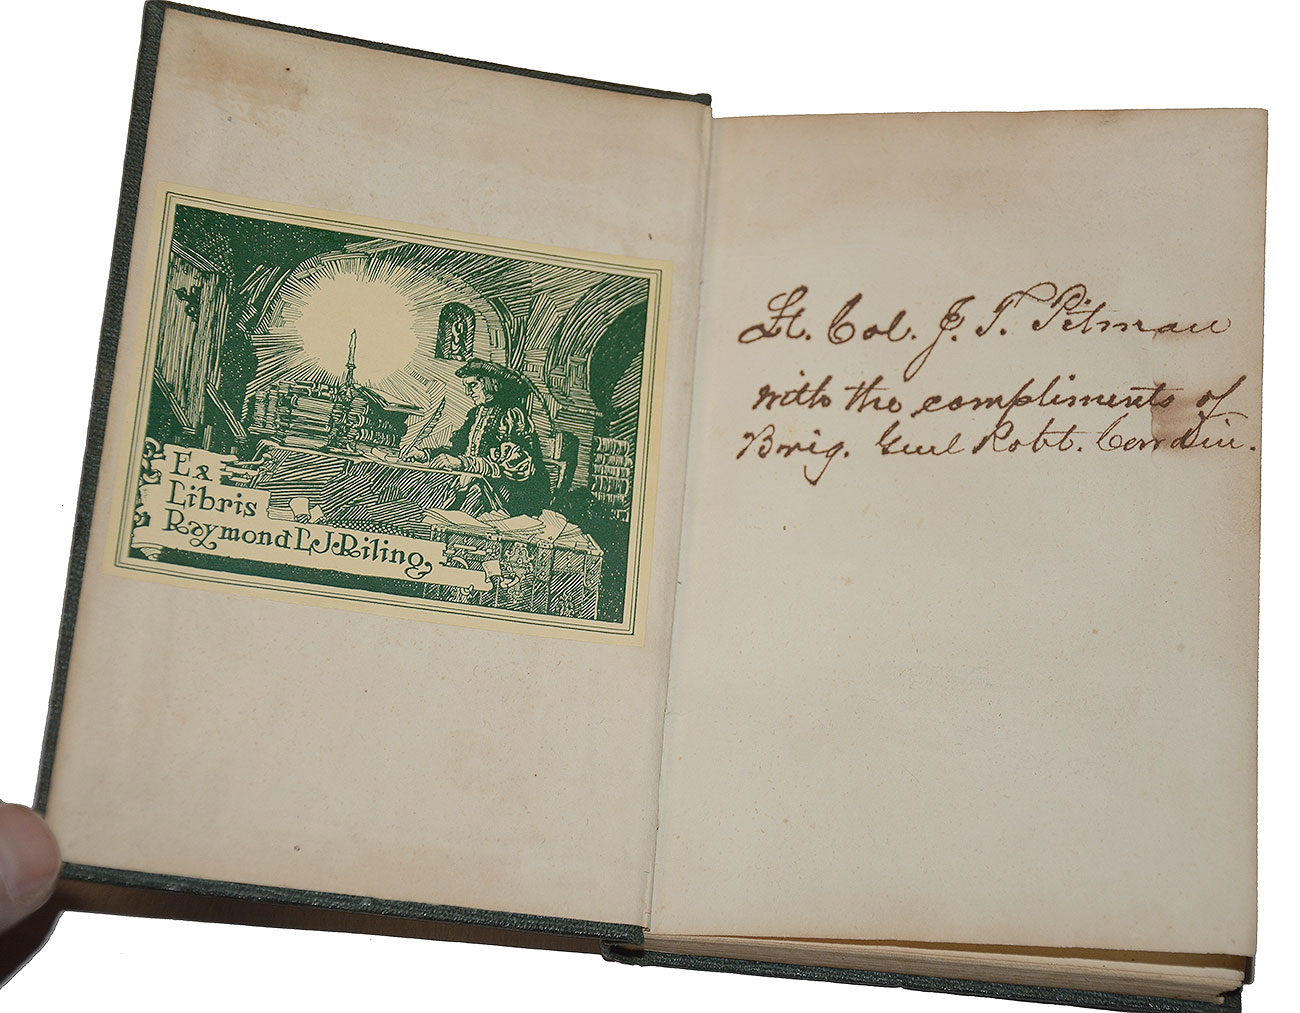 Ex
Libris
Raymond L.J. Riling
Lt. Col. J. T. Pitman
with the compliments of
Brig. Genl Robt.